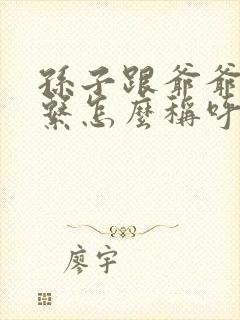 孫子跟爺爺
繫怎麼稱呼
廖宇